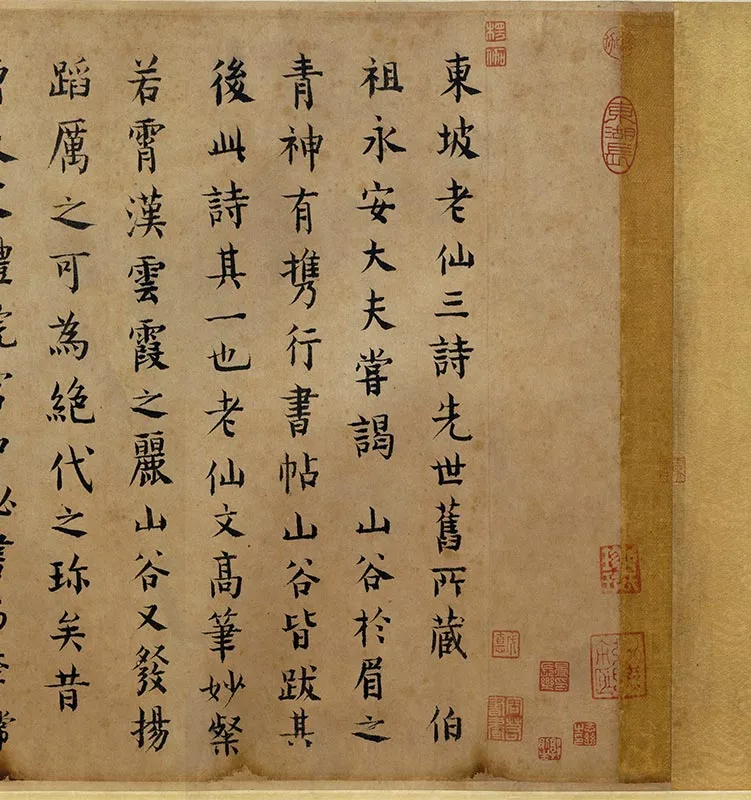 東湖長
楞伽
東坡老仙三詩先世舊所藏 伯
祖永安大夫嘗謁 山谷於眉之
青神有携行書帖山谷皆跋其
後此詩其一也老仙文高筆妙粲
若霄漢雲霞之麗山谷又發揚
蹈厲之可為絕代之珎矣昔